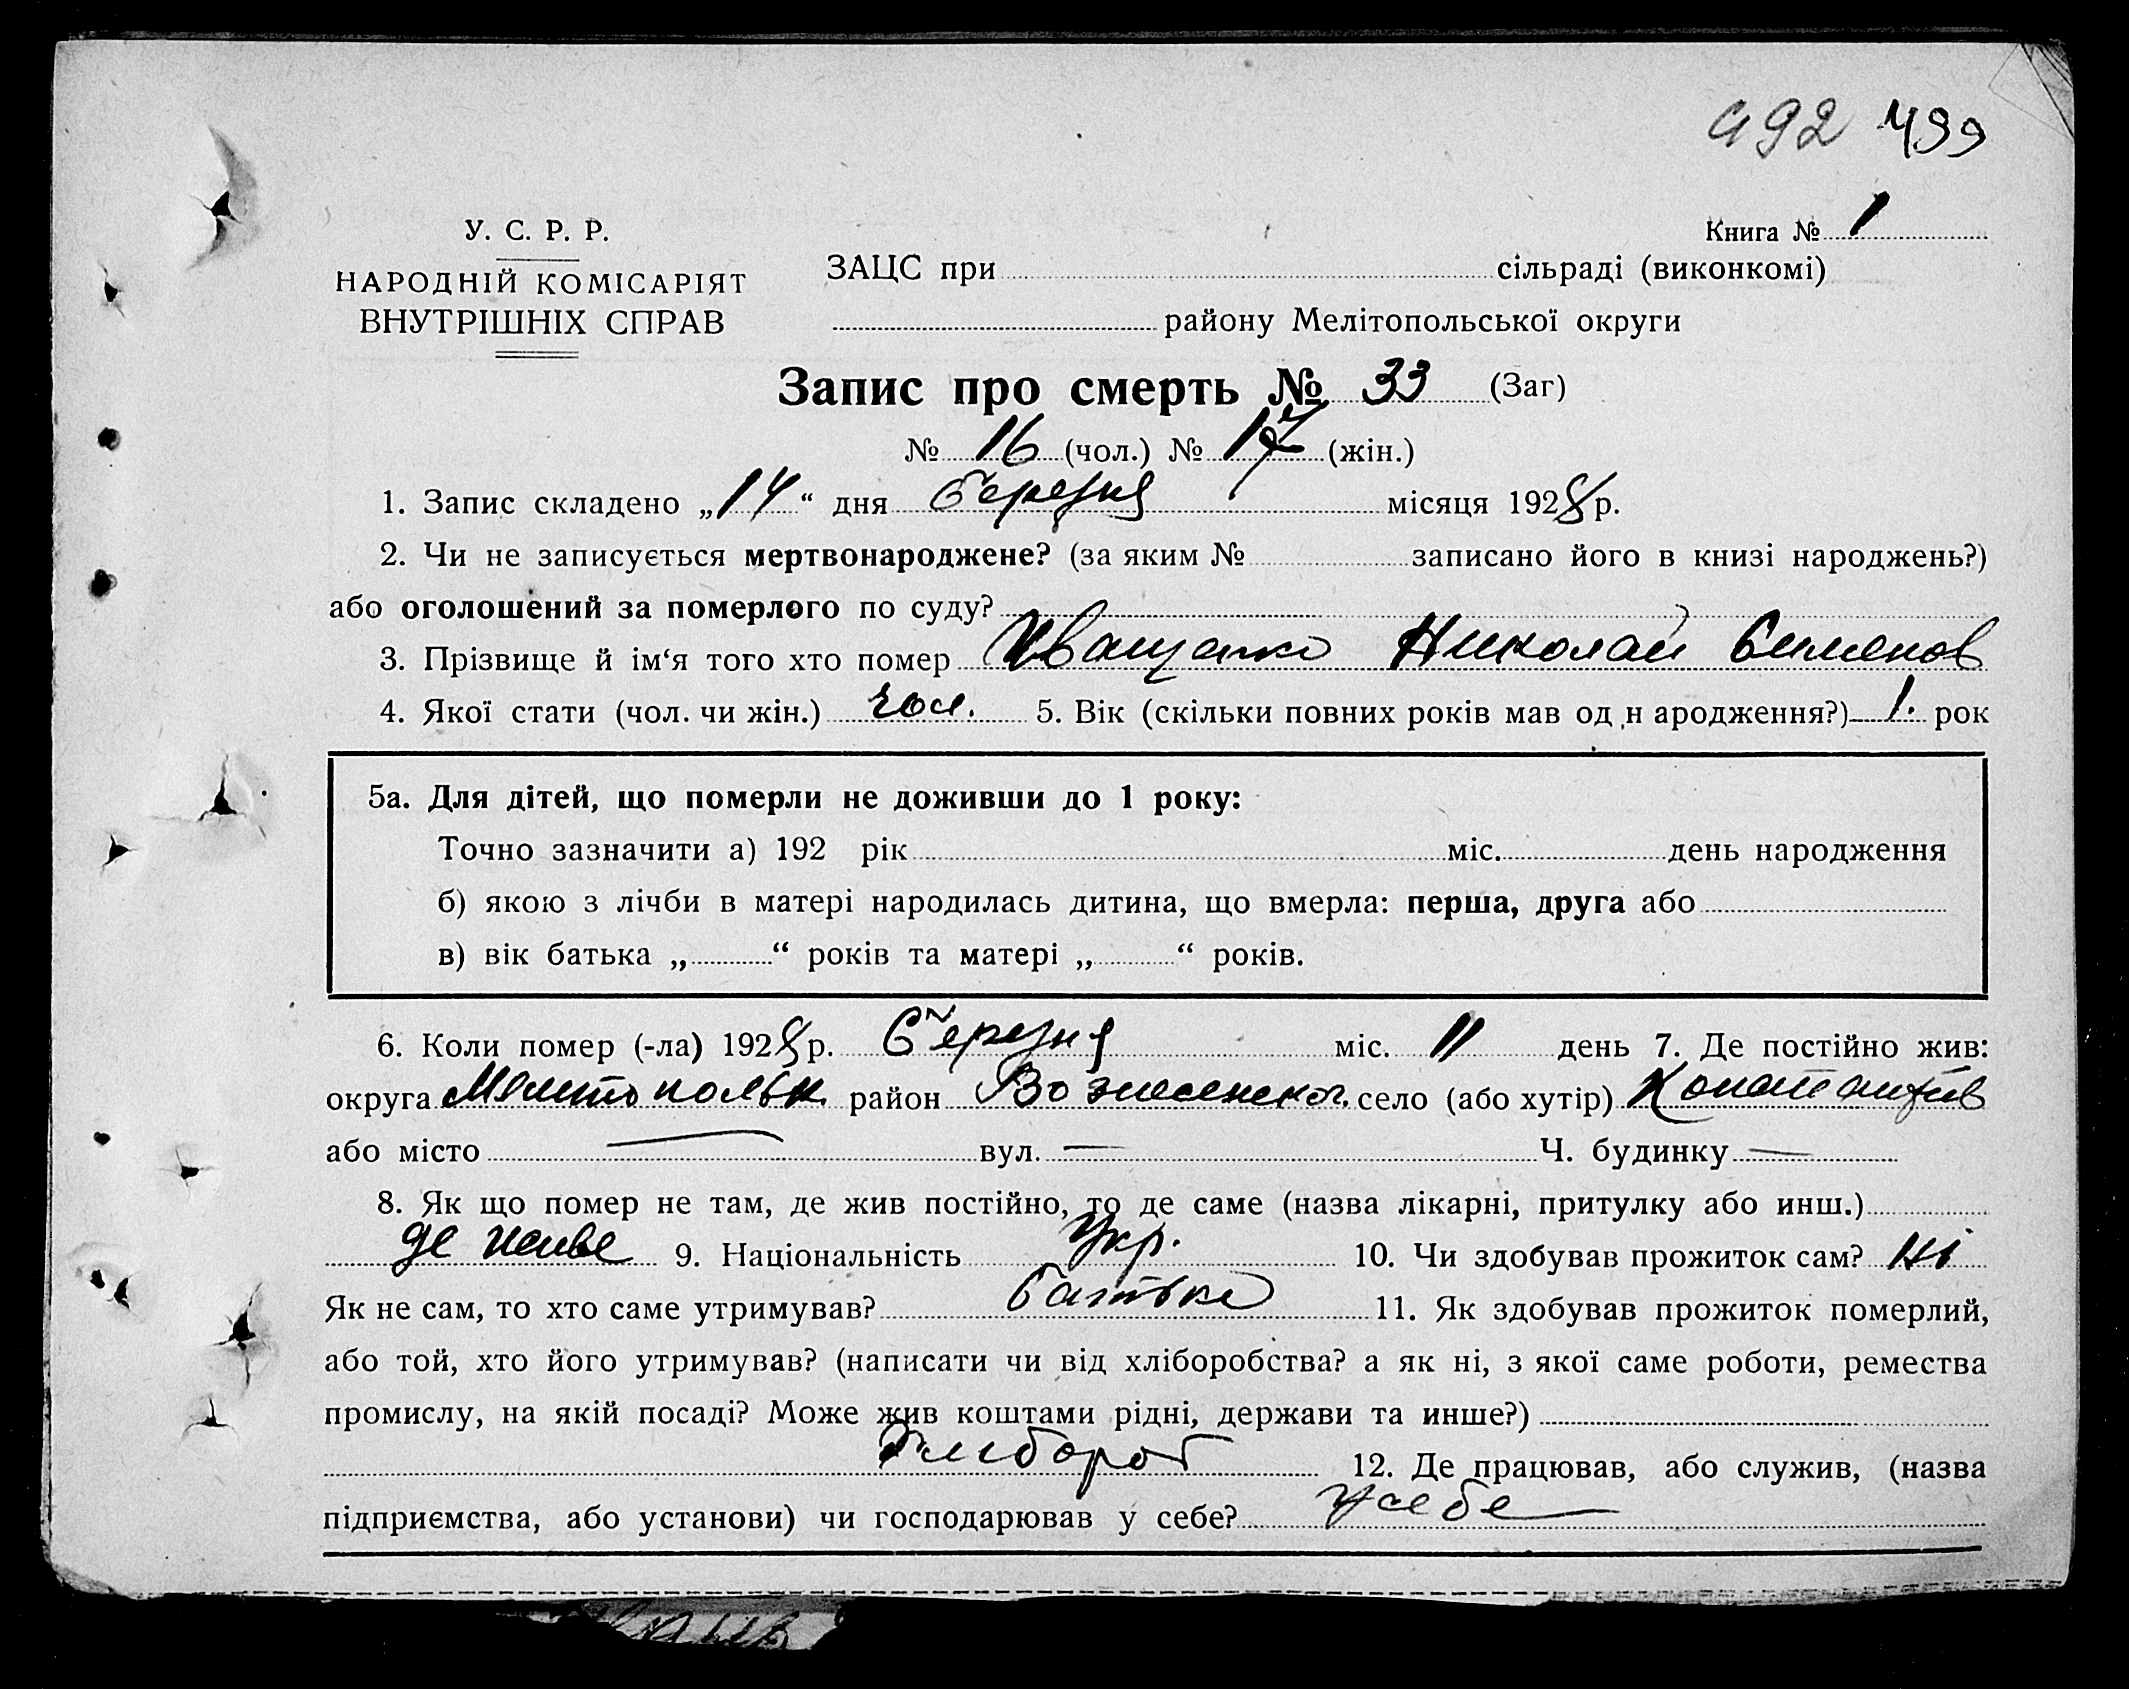 492 499
У. С. Р. Р.
Книга № 1
НАРОДНІЙ КОМІСАРІЯТ
ВНУТРІШНІХ СПРАВ
ЗАЦС при сільраді (виконкомі)
району Мелітопольської округи
Запис про смерть № 33 (Заг)
№ 16 (чол.) № 17 (жін.)
1. Запис складено „14“ дня березня місяця 1928 р.
2. Чи не записується мертвонароджене? (за яким № записано його в книзі народжень?)
або оголошений за померлого по суду?
3. Прізвище й ім‘я того хто помер Иващенко Николай Сименов
4. Якої стати (чол. чи жін.) чол. 5. Вік (скільки повних років мав од ,н ародження?) 1. рок
5а. Для дітей, що померли не доживши до 1 року:
Точно зазначити а) 192 рік міс. день народження
б) якою з лічби в матері народилась дитина, що вмерла: перша, друга або
в) вік батька „ “ років та матері „ “ років.
6. Коли помер (-ла) 1928 р. Березня міс. 11 день 7. Де постійно жив:
округа Мелитопольк. район Вознесенськ. село (або хутір)
або місто — вул. — Ч. будинку —
8. Як що помер не там, де жив постійно, то де саме (назва лікарні, притулку або инш.)
де живе 9. Національність Укр. 10. Чи здобував прожиток сам? ні
Як не сам, то хто саме утримував? батько 11. Як здобував прожиток померлий,
або той, хто його утримував? (написати чи від хліборобства? а як ні, з якої саме роботи, ремества
промислу, на якій посаді? Може жив коштами рідні, держави та инше?)
Хлибороб 12. Де працював, або служив, (назва
підприємства, або установи) чи господарював у себе? у себе